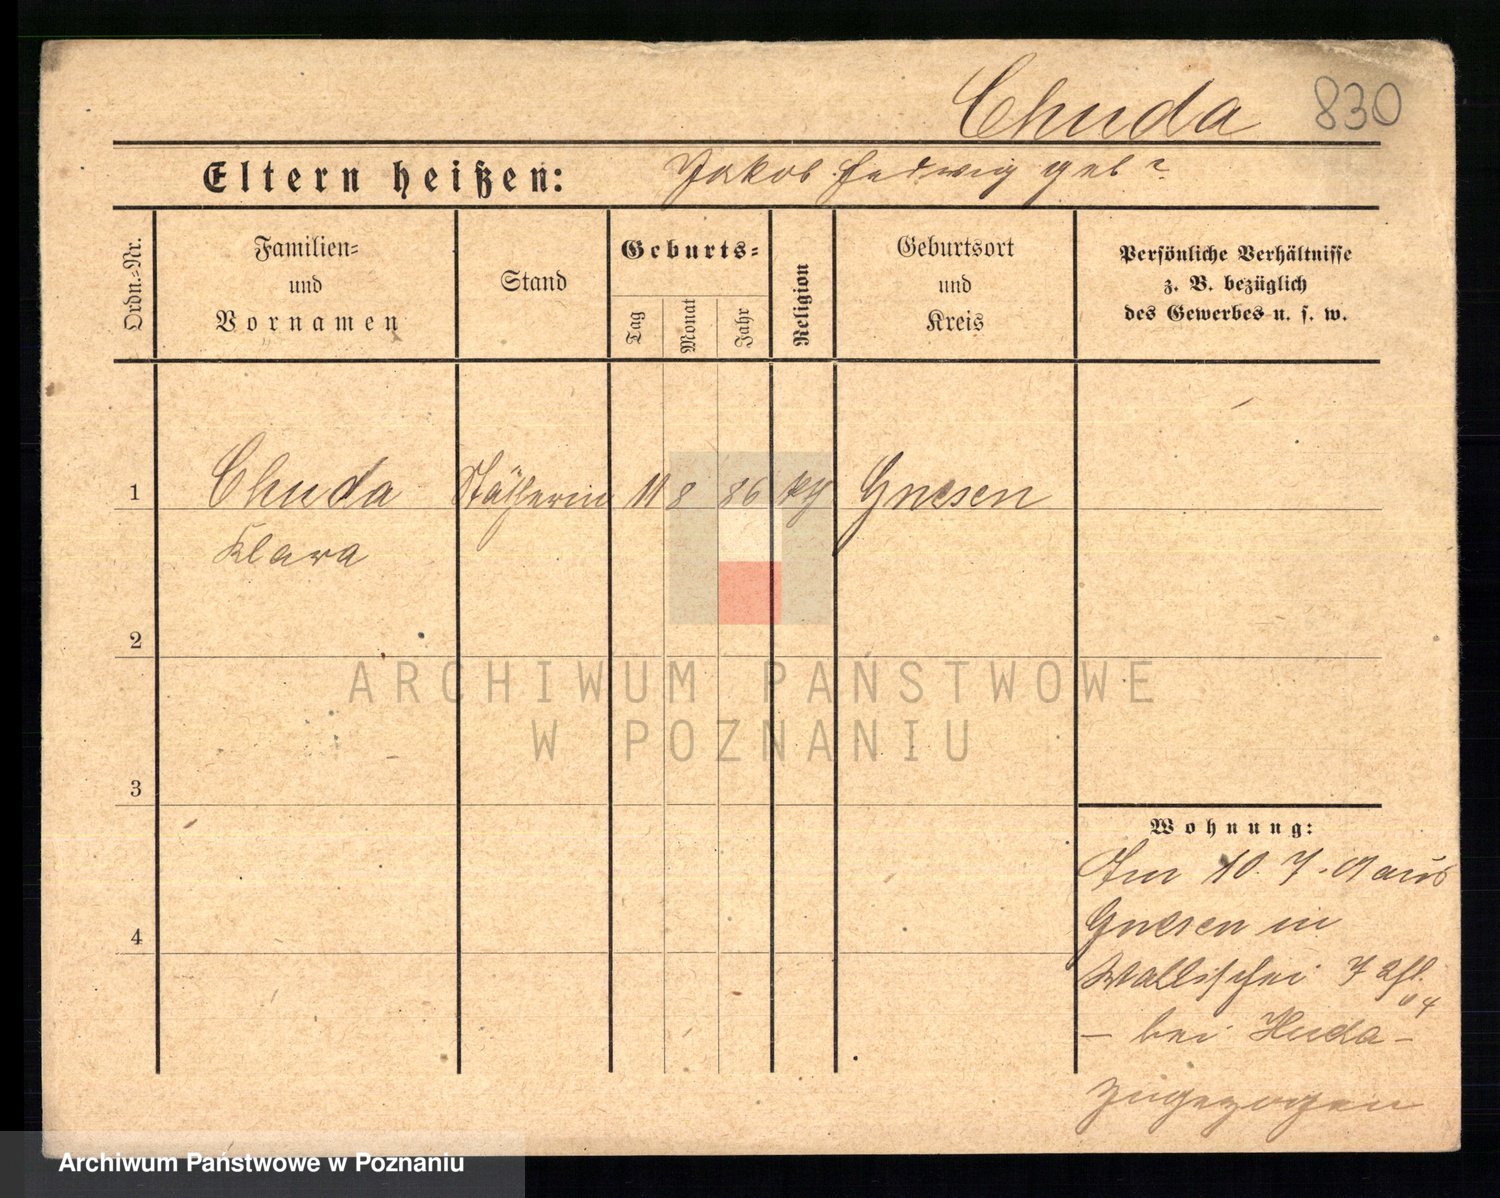 Chuda 830
Eltern heißen: Jakob Hedwig geb ?
Ordn.-Nr.
Familien-
und
Vornamen
Stand
Geburts-
Tag
Monat
Jahr
Religion
Geburtsort
und
Kreis
Persönliche Verhältnisse
z. B. bezüglich
des Gewerbes u. s. w.
1 Chuda 11 8 86 Gnesen
Klara
2
3
4
Wohnung:
Am 10. 7. 01 aus
Gnesen in
Wallischei 7
– bei Huda –
zugezogen
ARCHIWUM PAŃSTWOWE
W POZNANIU
Archiwum Państwowe w Poznaniu